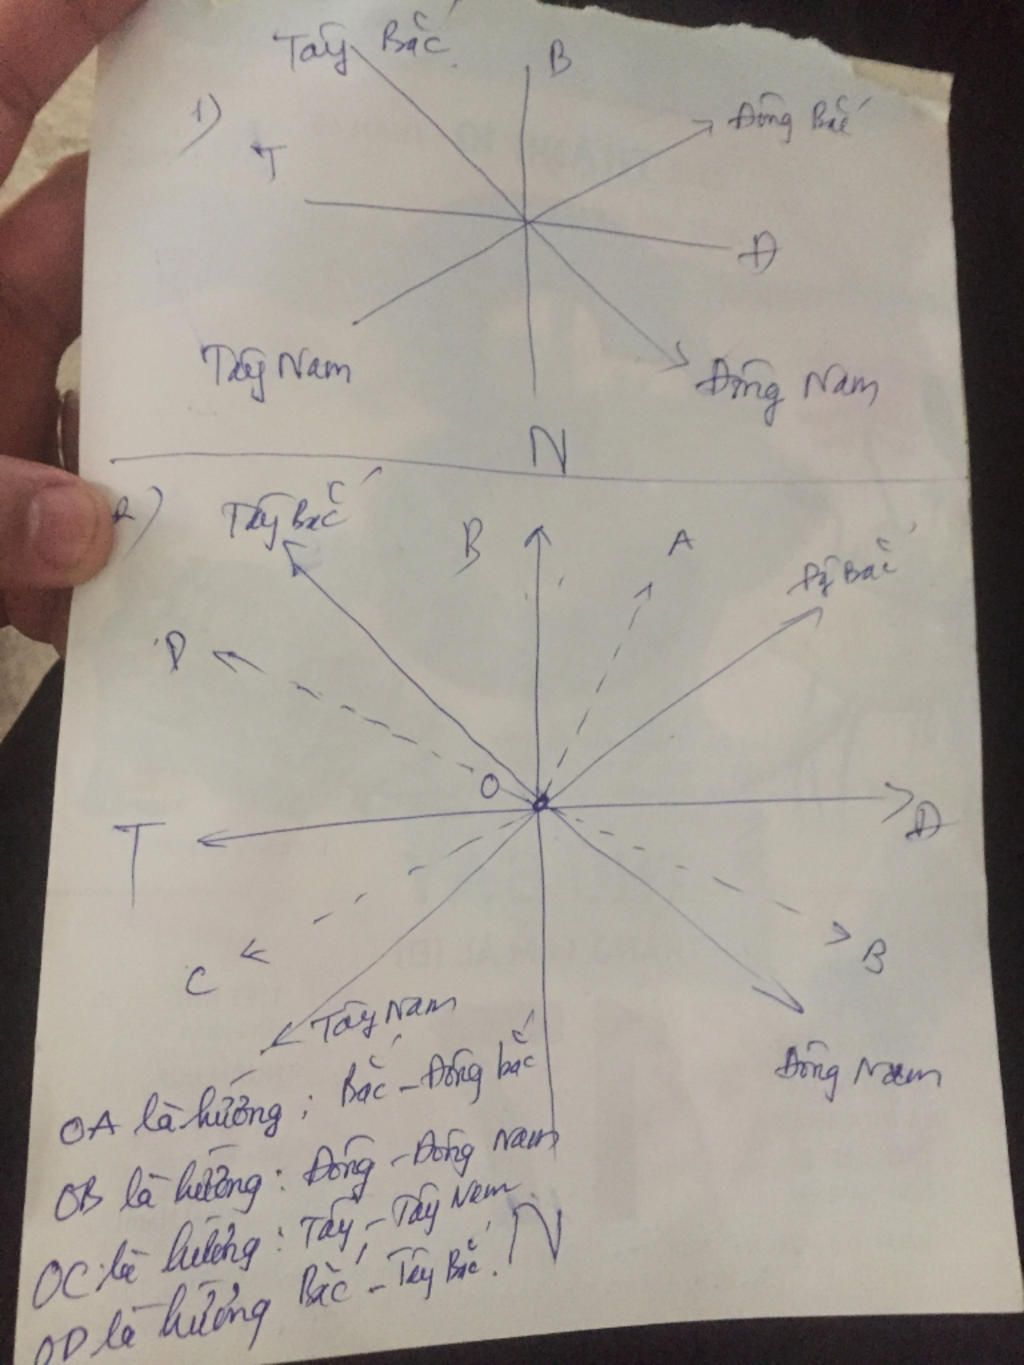 Tây Bắc
B
1)
Đông Bắc
T
Đ
Tây Nam
Đông Nam
N
2)
Tây Bắc
B
A
Đg Bắc
D
O
T
Đ
C
B
Tây Nam
Đông Nam
OA là hướng : Bắc - Đông bắc
OB là hướng : Đông - Đông Nam
OC là hướng : Tây - Tây Nam
OD là hướng Bắc - Tây Bắc.
N